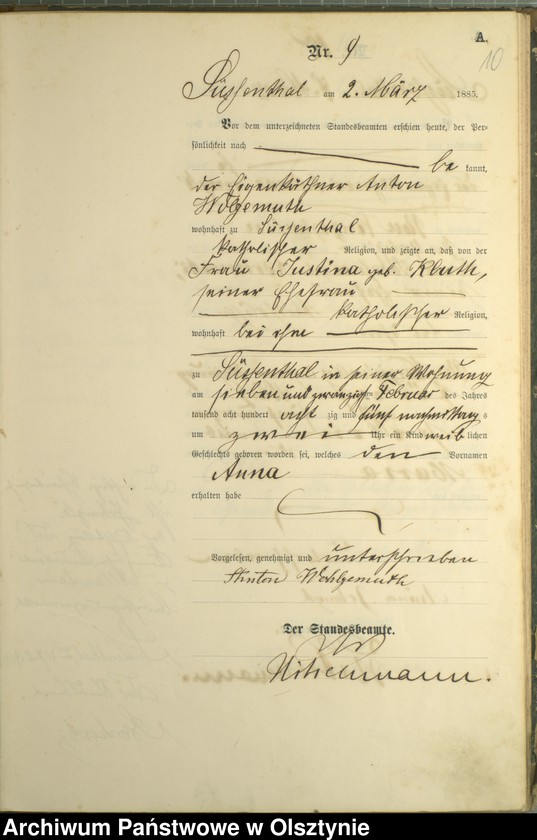 A.
10
Nr. 9
Süssenthal am 2. März 1885.
Vor dem unterzeichneten Standesbeamten erschien heute, der Per-
sönlichkeit nach
be kannt,
der Eigenkäthner Anton
Wolgemuth
wohnhaft zu Süssenthal
katholischer Religion, und zeigte an, daß von der
Frau Justina geb. Kluth,
seiner Ehefrau
katholischer Religion,
wohnhaft bei ihm
zu Süssenthal in seiner Wohnung
am sieben und zwanzigsten Februar des Jahres
tausend acht hundert acht zig und fünf nachmittag s
um zwei Uhr ein Kind weib lichen
Geschlechts geboren worden sei, welches den Vornamen
Anna
erhalten habe
Vorgelesen, genehmigt und unterschrieben
Anton Wohlgemuth
Der Standesbeamte.
Archiwum Państwowe w Olsztynie